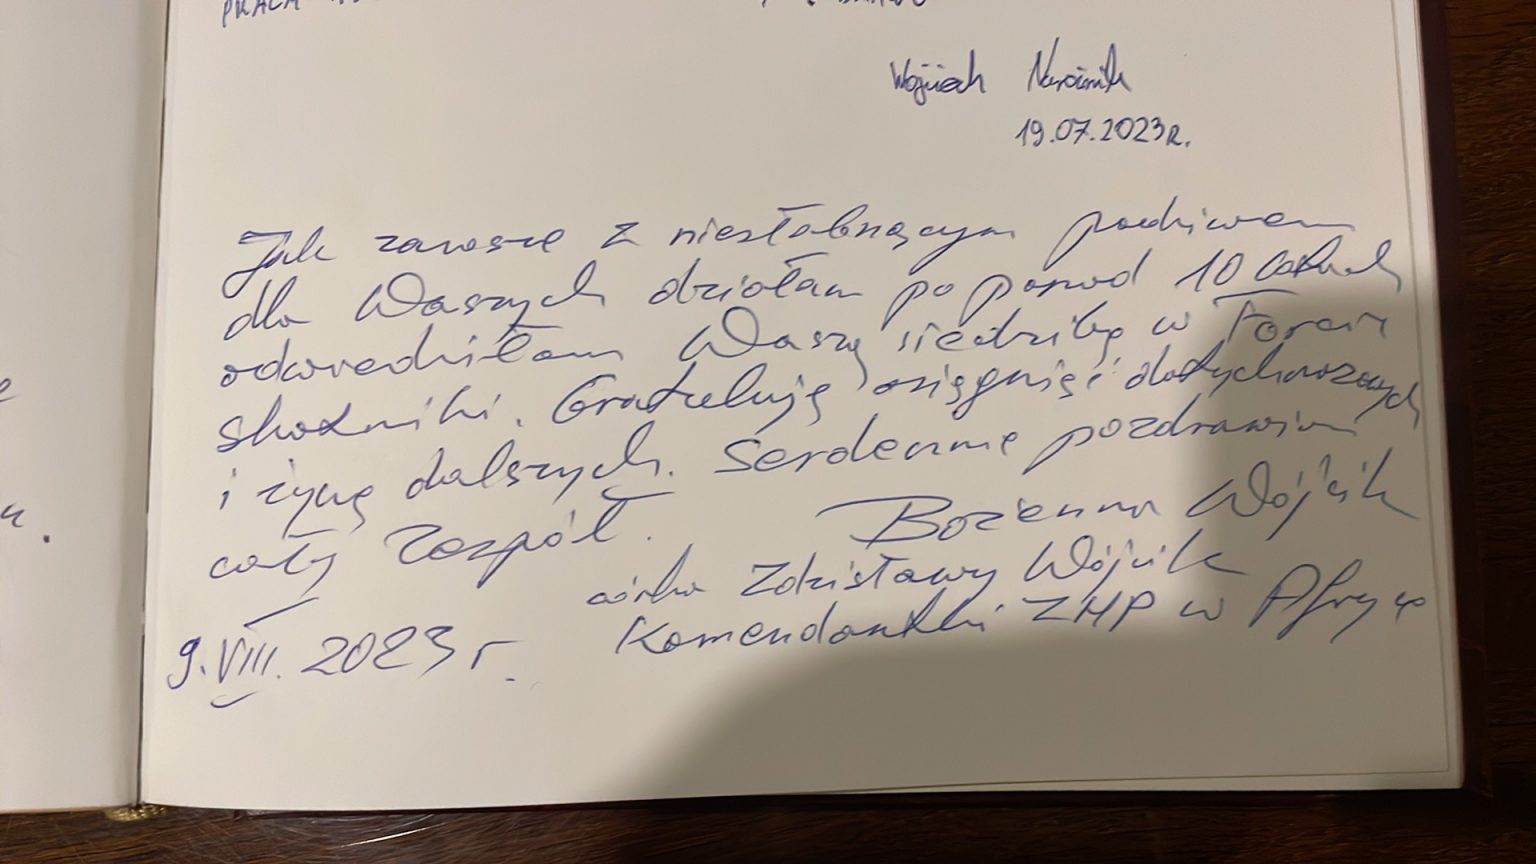 PRACA
Wojciech
19.07.2023R.
Jak zawsze z niesłabnącym podziwem
dla Waszych działań po ponad 10 latach
odwiedziłam Waszą siedzibę w Forcie
Gratuluję osiągnięć dotychczasowych
i życzę dalszych. Serdecznie pozdrawiam
cały Zespół.
Bożenna Wójcik
córka Zdzisławy Wójcik
Komendantki ZHP w Afryce
9.VIII.2023 r.